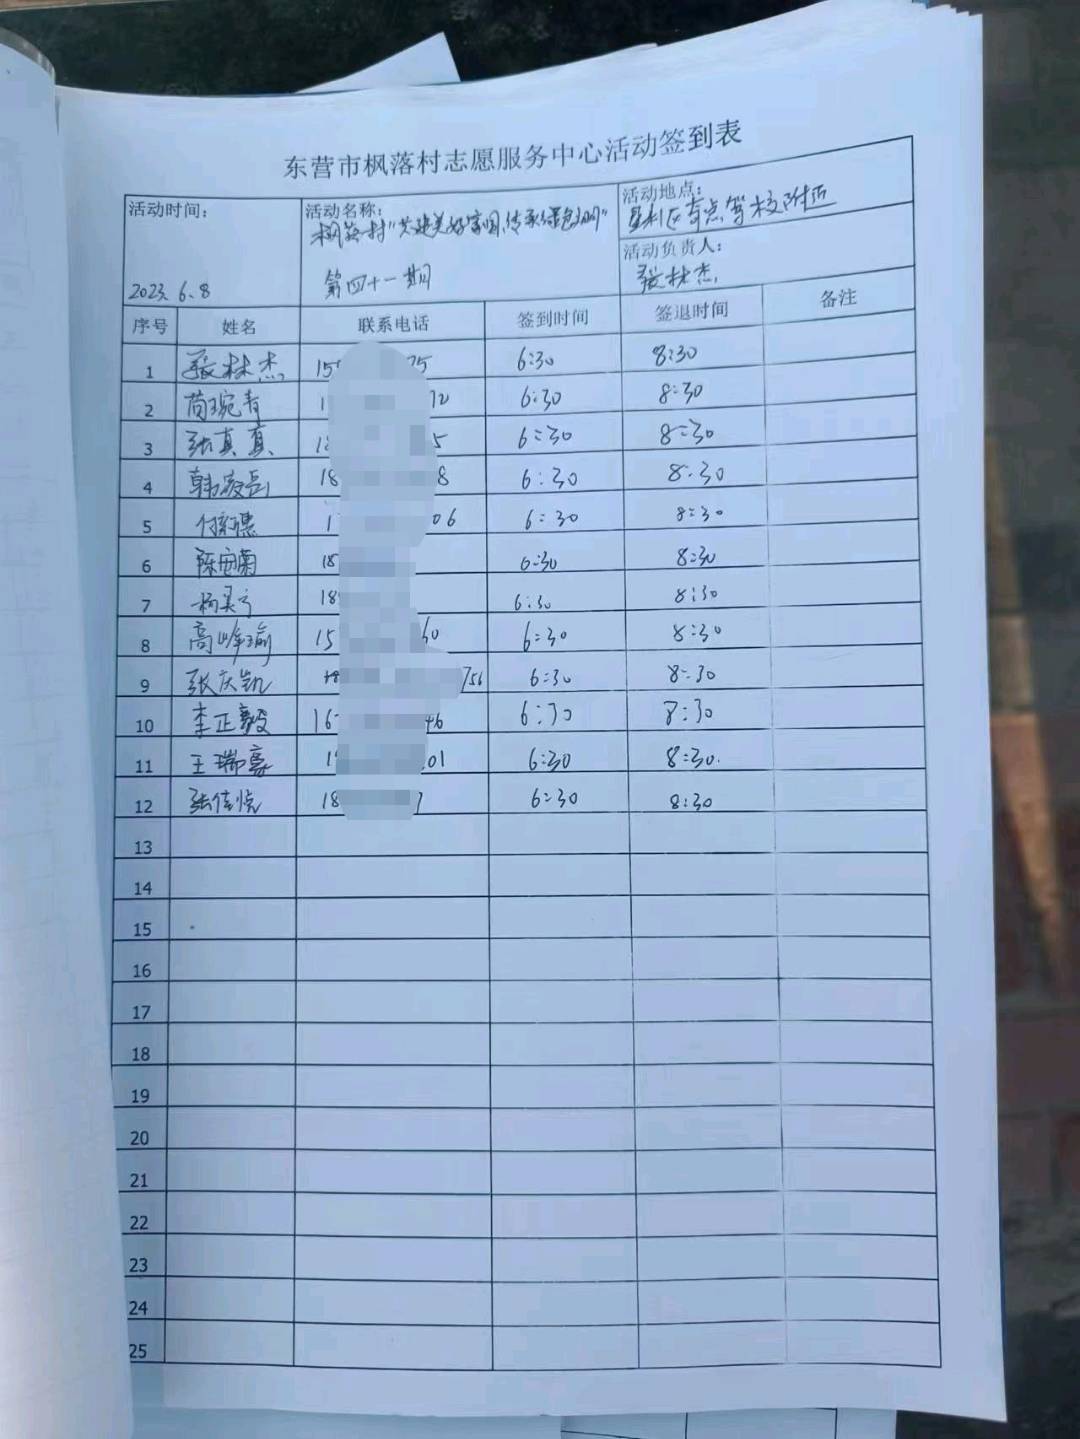 东营市枫落村志愿服务中心活动签到表
活动时间： 2023. 6.8
活动名称： 枫落村"共建美好家园，传承绿色文明"
第四十一期
活动地点： 垦利区 驾校附近
活动负责人： 张林杰
序号 姓名 联系电话 签到时间 签退时间 备注
1 张林杰 15 75 6:30 8:30
2 苘琬青 1 72 6:30 8:30
3 张真真 18 5 6:30 8:30
4 韩 岳 18 8 6:30 8:30
5 付 1 06 6:30 8:30
6 陈 菊 18 6:30 8:30
7 杨 18 6:30 8:30
8 高峰瑜 15 30 6:30 8:30
9 张庆凯 18 756 6:30 8:30
10 李正毅 16 46 6:30 8:30
11 王瑞豪 1 01 6:30 8:30.
12 张佳悦 18 7 6:30 8:30
13
14
15
16
17
18
19
20
21
22
23
24
25